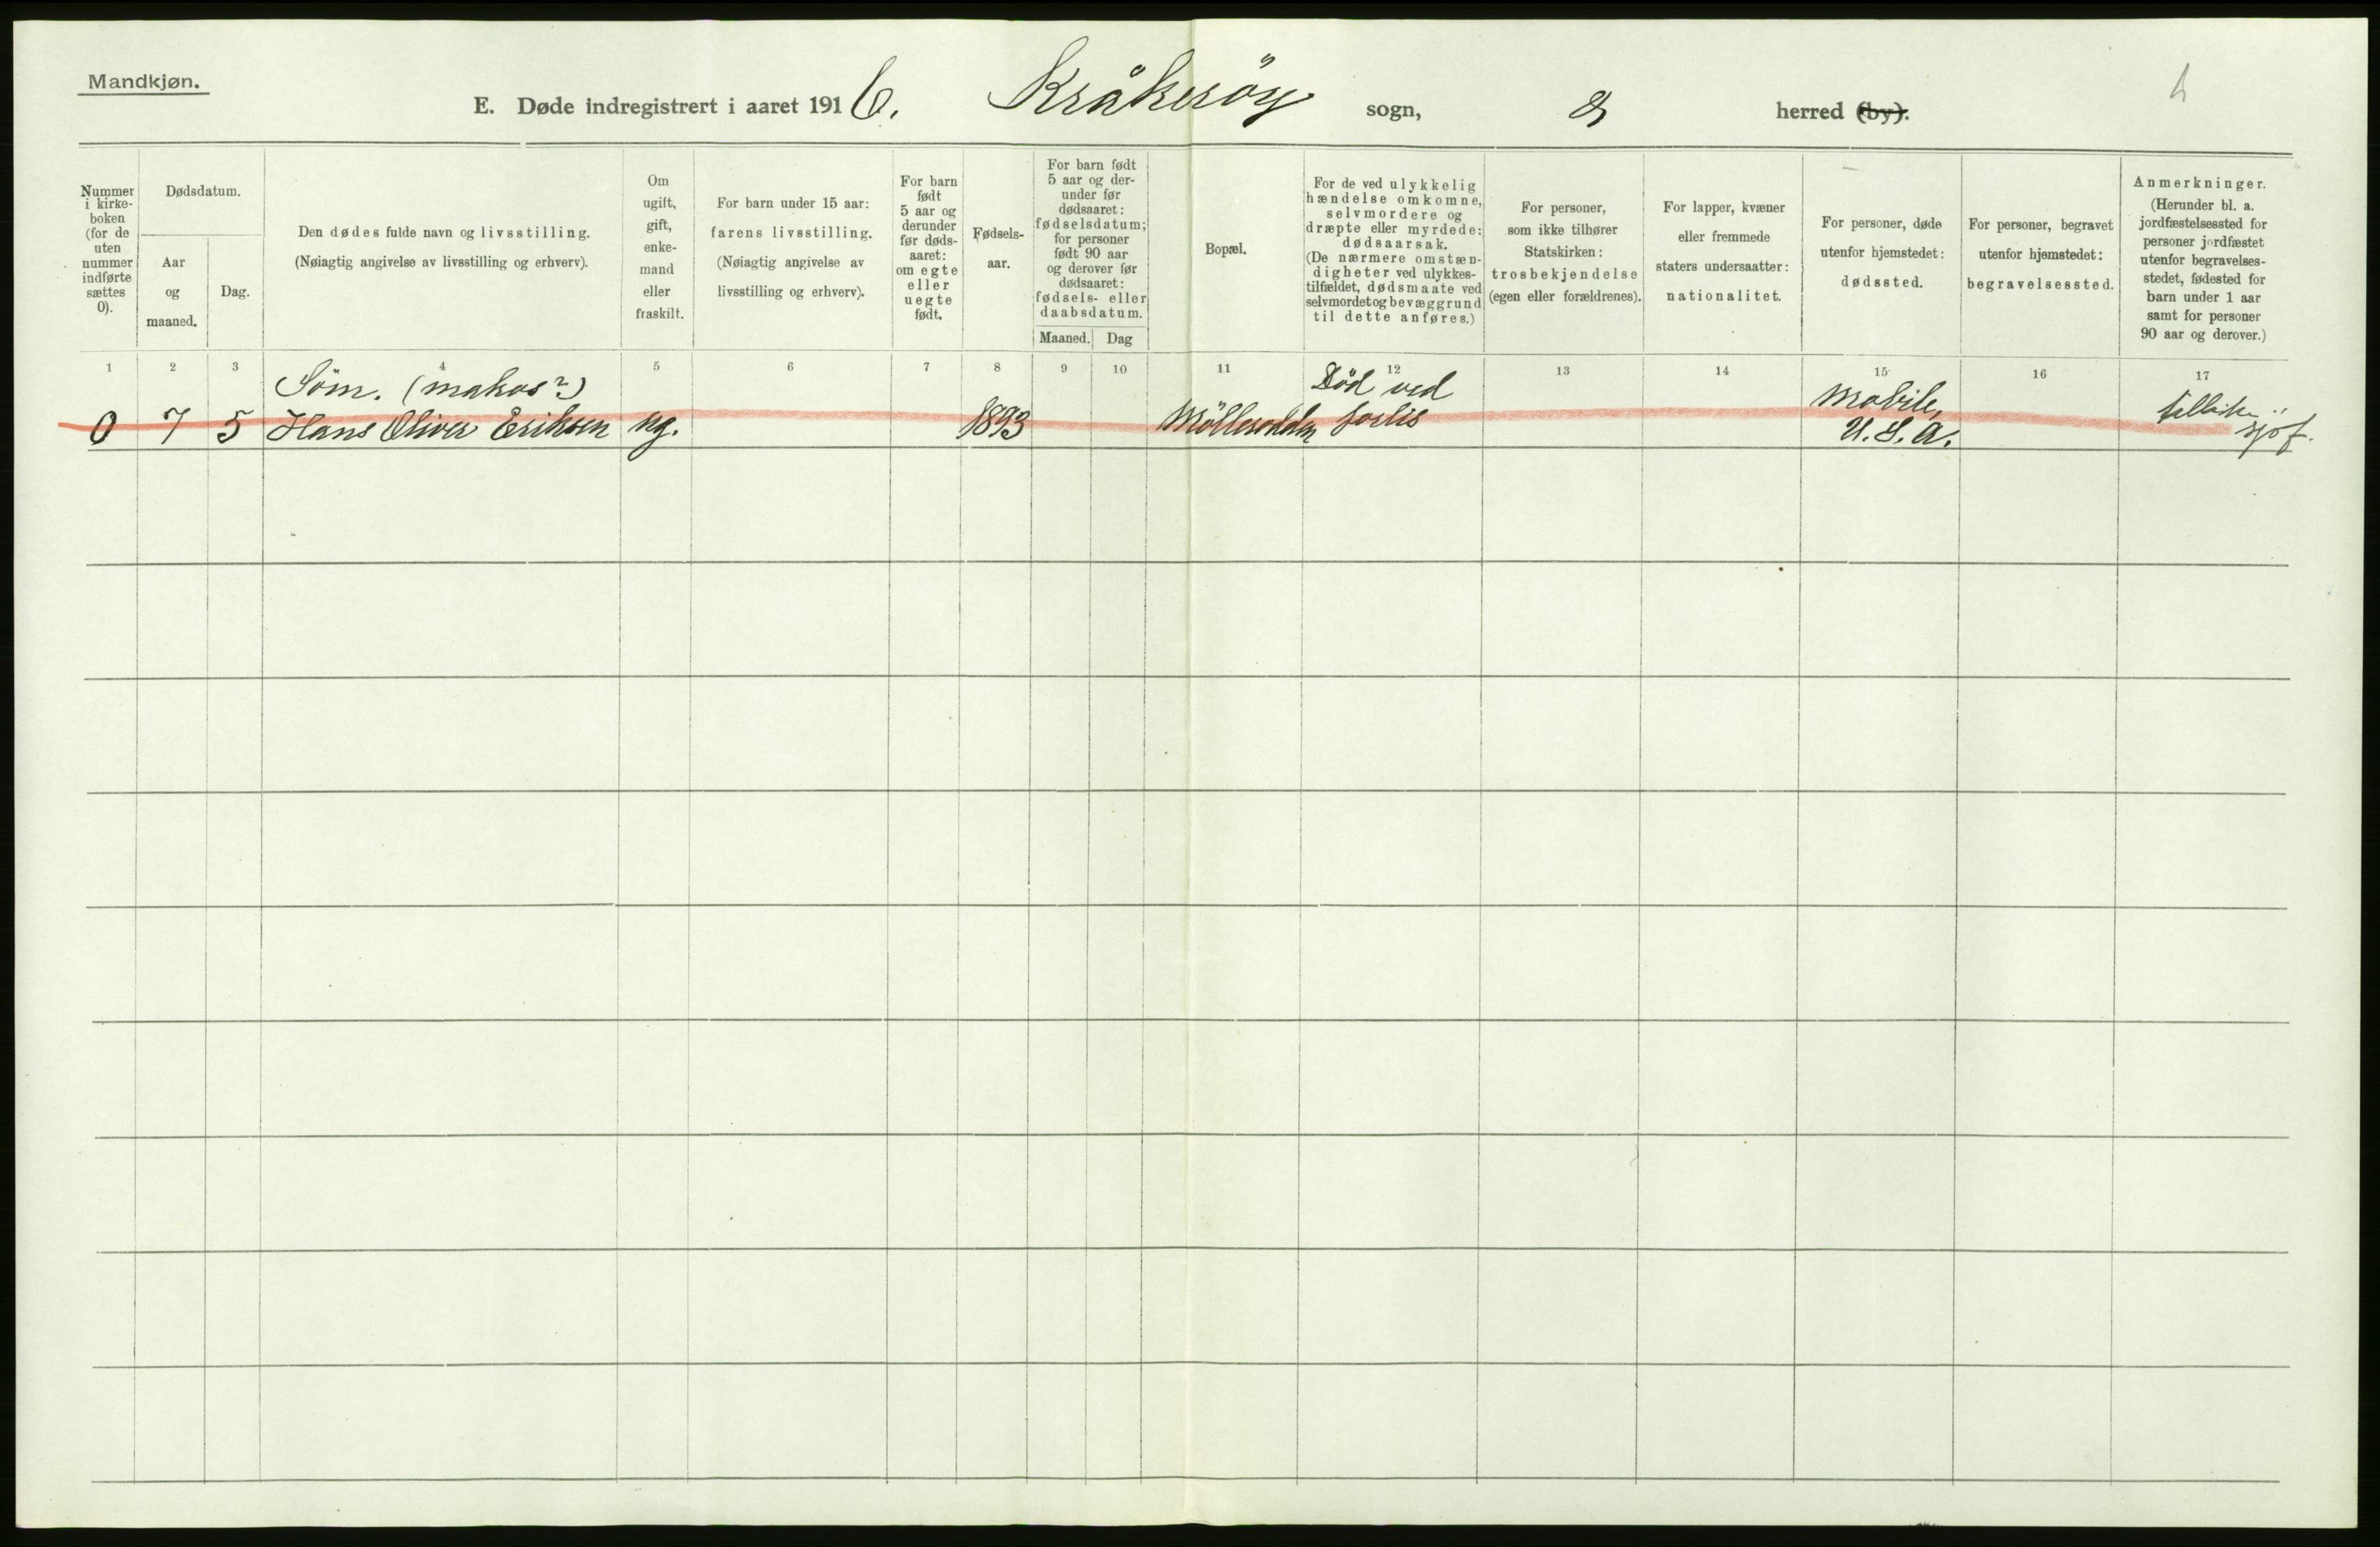 Mandkjøn.
E. Døde indregistrert i aaret 1916. Kråkeröy sogn, herred (by).
Nummer
i kirke-
boken
(for de
uten
nummer
indførte
sættes
0).
Dødsdatum.
Aar
og
maaned.
Dag.
Den dødes fulde navn og livsstilling.
(Nøiagtig angivelse av livsstilling og erhverv).
Om
ugift,
gift,
enke-
mand
eller
fraskilt.
For barn under 15 aar:
farens livsstilling.
(Nøiagtig angivelse av
livsstilling og erhverv).
For barn
født
5 aar og
derunder
før døds-
aaret:
om egte
eller
uegte
født.
Fødsels-
aar.
For barn født
5 aar og der-
under før
dødsaaret:
fødselsdatum;
for personer
født 90 aar
og derover før
dødsaaret:
fødsels- eller
daabsdatum.
Maaned. Dag
Bopæl.
For de ved ulykkelig
hændelse omkomne,
selvmordere og
dræpte eller myrdede:
dødsaarsak.
(De nærmere omstæn-
digheter ved ulykkes-
tilfældet, dødsmaate ved
selvmordet og bevæggrund
til dette anføres.)
For personer,
som ikke tilhører
Statskirken:
trosbekjendelse
(egen eller forældrenes).
For lapper, kvæner
eller fremmede
staters undersaatter:
nationalitet.
For personer, døde
utenfor hjemstedet:
dødssted.
For personer, begravet
utenfor hjemstedet:
begravelsessted.
Anmerkninger.
(Herunder bl. a.
jordfæstelsessted for
personer jordfæstet
utenfor begravelses-
stedet, fødested for
barn under 1 aar
samt for personer
90 aar og derover.)
1 2 3 4 5 6 7 8 9 10 11 12 13 14 15 16 17
Söm. (makas?) Död ved Mobile,
0 7 5 Hans Oliver Eriksen ug. 1893 forlis U.S.A. sjöf.